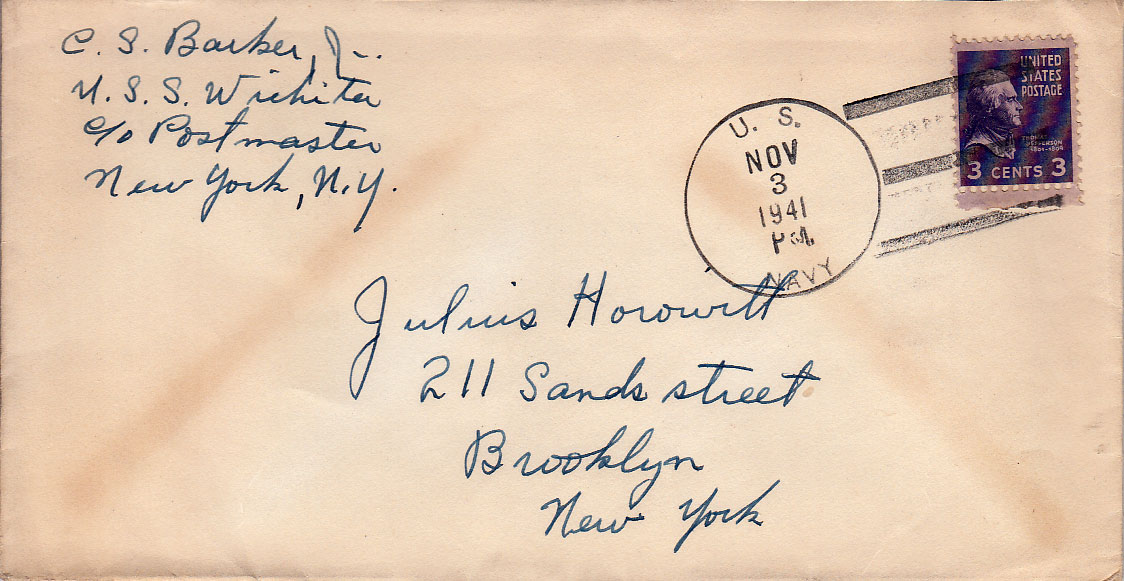 C. S. Barker, Jr.
U. S. S. Wichita
c/o Postmaster
New York, N.Y.
U. S.
NOV
3
1941
PM
NAVY
UNITED
STATES
POSTAGE
THOMAS
JEFFERSON
1801-1809
3 CENTS 3
Julius Horowitt
211 Sands street
Brooklyn
New York